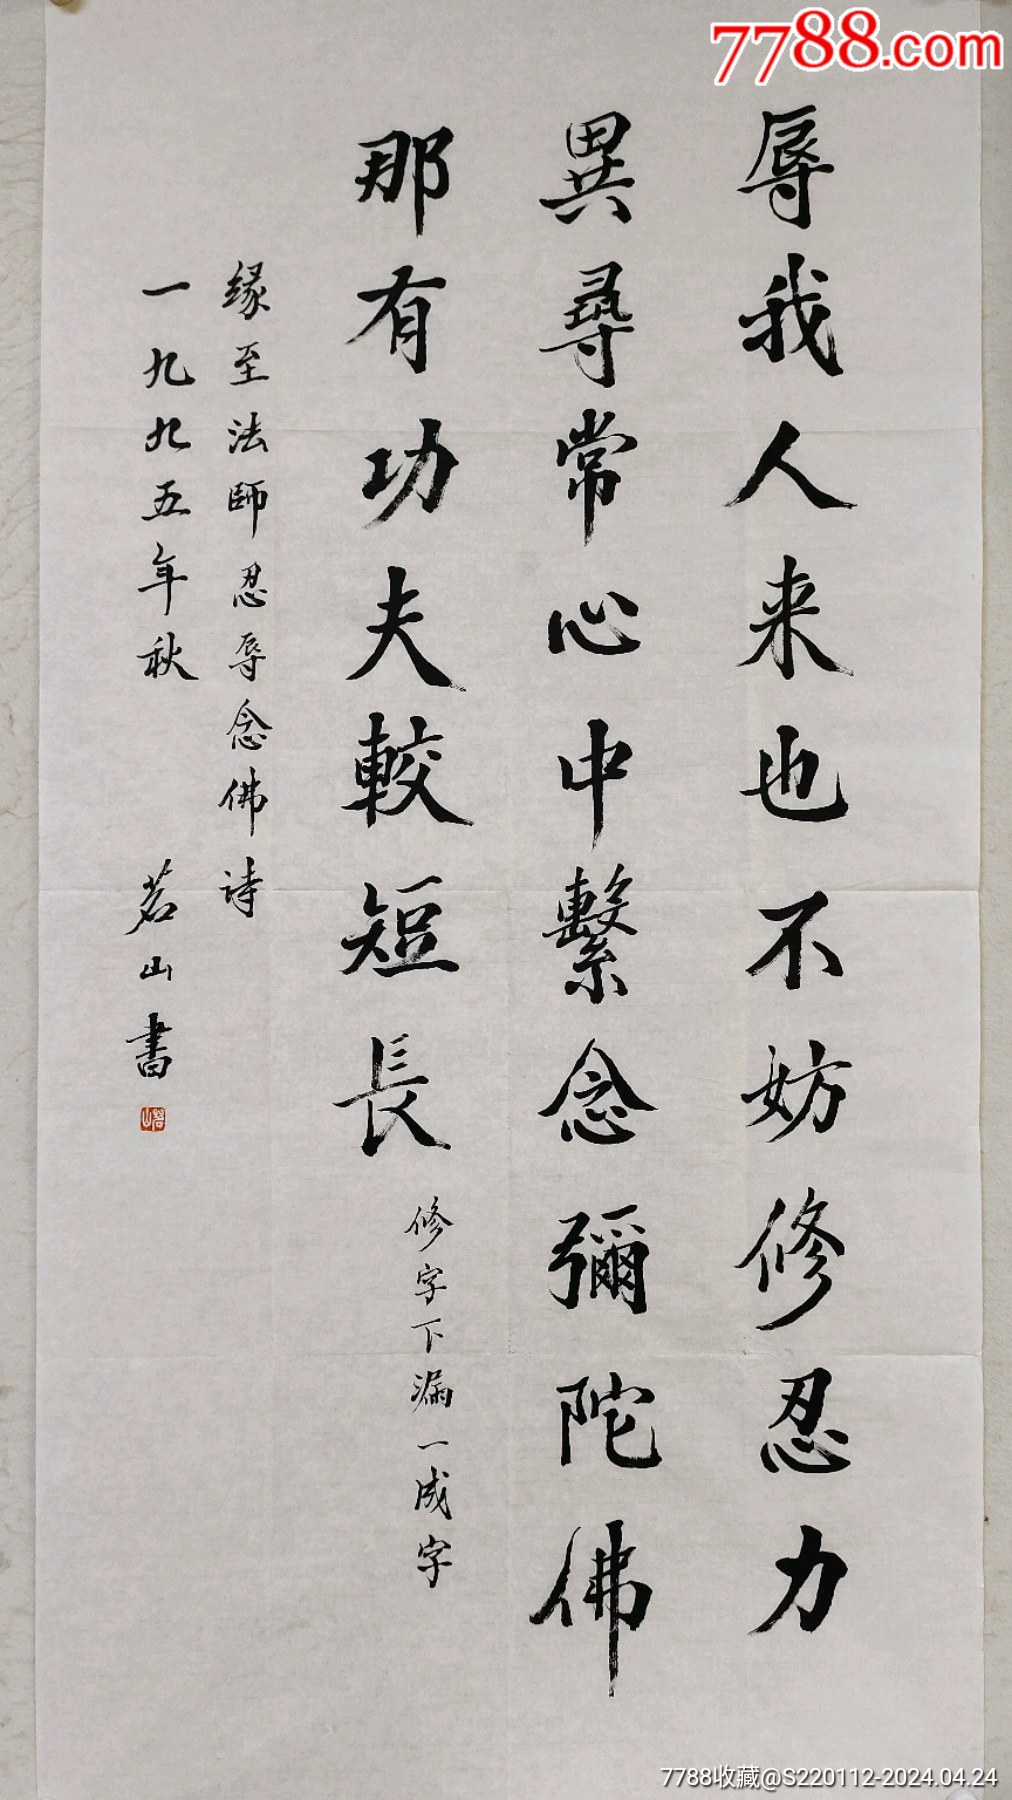 7788.com
辱我人来也不妨修忍力
異尋常心中繫念彌陀佛
那有功夫較短長
修字下漏一成字
缘至法師忍辱念佛诗
一九九五年秋 茗山書
茗山
7788收藏@S220112-2024.04.24